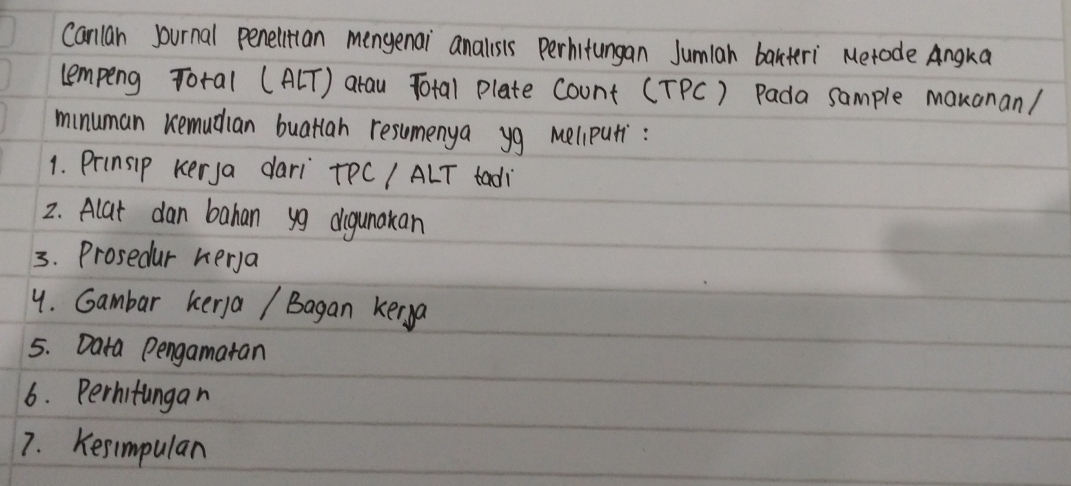 Carilah Journal penelitian mengenai analisis Perhitungan Jumlah bakteri Metode Angka
Lempeng Total (ALT) atau Total Plate Count (TPC) Pada sample makanan/
minuman kemudian buatlah resumenya yg meliputi :
1. Prinsip kerja dari TPC / ALT tadi
2. Alat dan bahan yg digunakan
3. Prosedur kerja
4. Gambar kerja / Bagan kerja
5. Data Pengamatan
6. Perhitungan
7. Kesimpulan